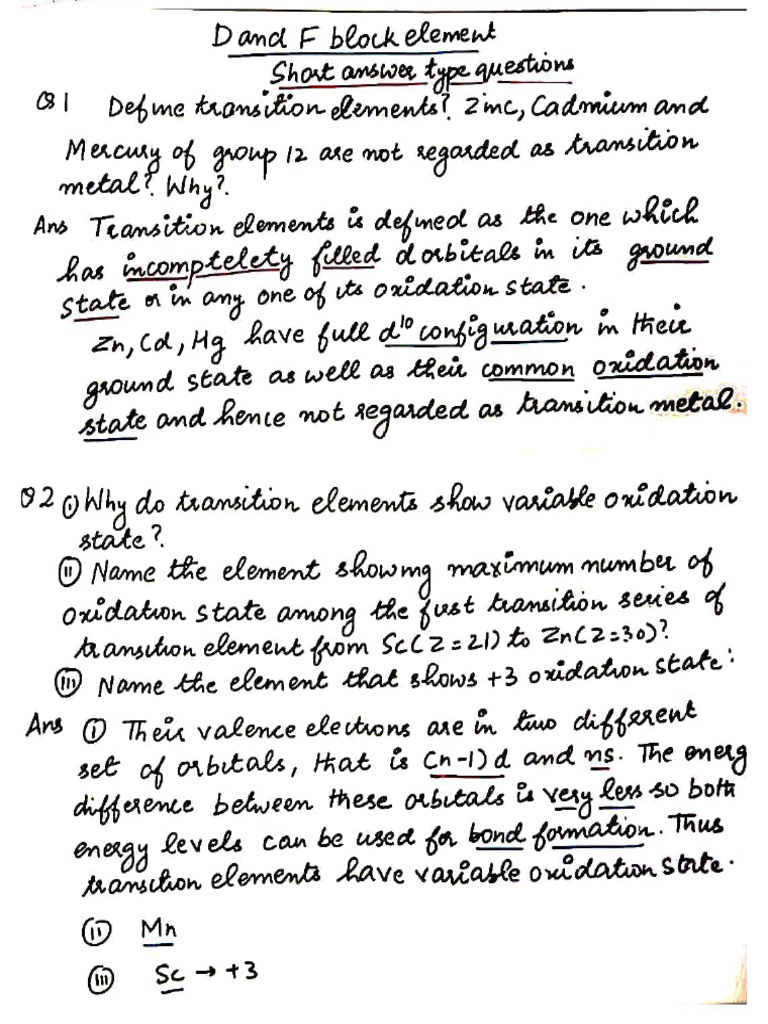 D and F block element
Short answer type questions
Q1 Define transition elements? Zinc, Cadmium and
Mercury of group 12 are not regarded as transition
metal? Why?
Ans Transition elements is defined as the one which
has incomptelety filled d orbitals in its ground
state or in any one of its oxidation state.
Zn, Cd, Hg have full d¹⁰ configuration in their
ground state as well as their common oxidation
state and hence not regarded as transition metal.
Q2 (i) Why do transition elements show variable oxidation
state?
(ii) Name the element showing maximum number of
oxidation state among the first transition series of
transition element from Sc(Z=21) to Zn(Z=30)?
(iii) Name the element that shows +3 oxidation state:
Ans (i) Their valence electrons are in two different
set of orbitals, that is (n-1)d and ns. The energ
difference between these orbitals is very less so both
energy levels can be used for bond formation. Thus
transition elements have variable oxidation state.
(ii) Mn
(iii) Sc → +3